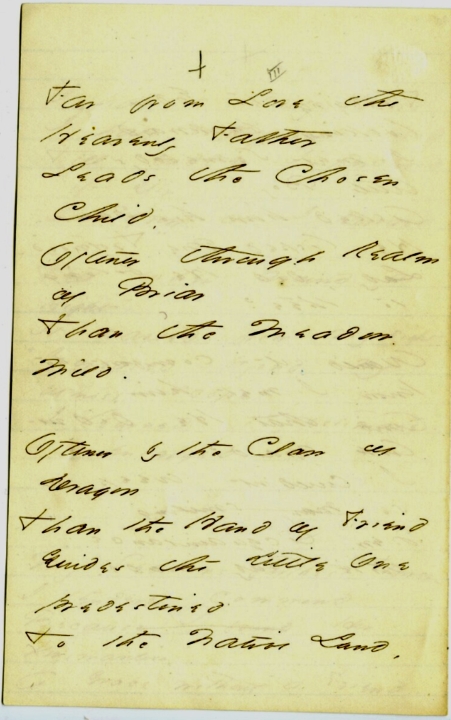 VIII
Far from Love the
Heavenly Father
Leads the Chosen
Child,
Oftener through Realm
of Briar
Than the Meadow
mild.
Oftener by the Claw of
Dragon
Than the Hand of Friend
Guides the Little One
predestined
To the Native Land.